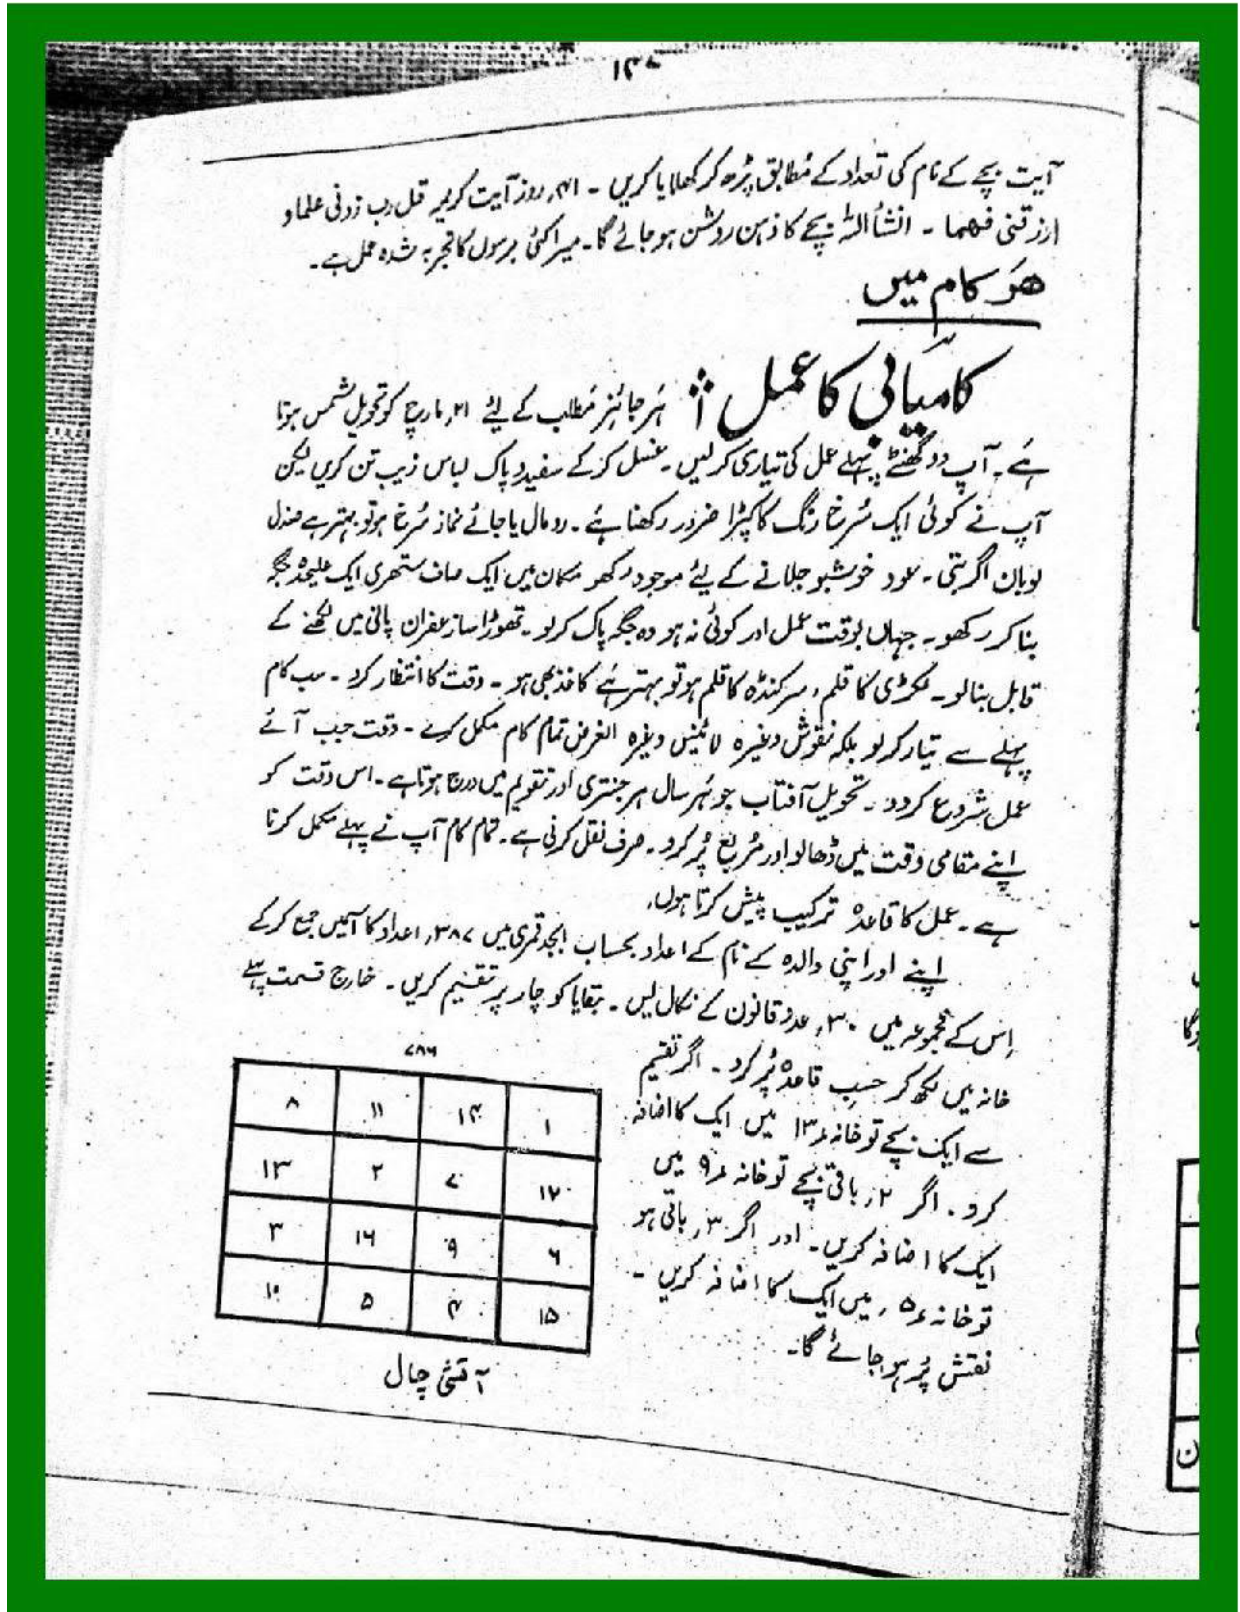 ۱۴۷
آیت بچے کے نام کی تعداد کے مُطابق پڑھ کر کھلایا کریں ۔ ۴۱ روز آیت کریمہ قل رب زدنی علما و
ارزقنی فہما ۔ انشأ اللہ بچے کا ذہن روشن ہو جائے گا۔ میرا کئی برسوں کا تجربہ شدہ عمل ہے۔
ھَر کام میں
کامیابی کا عمل
ہَر جائنز مَطلب کے لیٔے ۲۱ مارچ کو تحویل شمس ہوتا
ہَے ۔ آپ دو گھنٹے پہلے عمل کی تیاری کر لیں ۔ غسل کر کے سفید و پاک لباس زیب تن کریں لیکن
آپ نے کوئی ایک سُرخ رنگ کا کپڑا ضرور رکھنا ہَے ۔ رومال یا جائے نماز سُرخ ہو تو بہتر ہے صندل
لوبان اگر بتی ۔ عود خوشبو جلانے کے لئے موجود رکھو مکان میں ایک صاف ستھری ایک علیحدہ جگہ
بنا کر رکھو ۔ جہاں بوقت عمل اور کوئی نہ ہو وہ جگہ پاک کر لو ۔ تھوڑا سا زعفران پانی میں لکھنے کے
قابل بنا لو ۔ لکڑی کا قلم ، سرکنڈہ کا قلم ہو تو بہتر ہَے کاغذ بھی ہو ۔ وقت کا انتظار کرو ۔ سب کام
پہلے سے تیار کر لو بلکہ نقوش وغیرہ لائینیں وغیرہ الغرض تمام کام مکمل کرلے ۔ وقت جب آئے
عمل شروع کر دو ۔ تحویل آفتاب جو ہَر سال ہر جنتری اور تقویم میں درج ہوتا ہے ۔ اس وقت کو
اپنے مقامی وقت میں ڈھالو اور مُربع پُر کرو ۔ صرف نقل کرنی ہے ۔ تمام کام آپ نے پہلے مکمل کرنا
ہے ۔ عمل کا قاعدہ ترکیب پیش کرتا ہوں،
اپنے اور اپنی والدہ کے نام کے اعداد بحساب ابجد قمری میں ۳۸۷ اعداد کا آسمیں جمع کر کے
اِس کے مجموعہ میں ۳۰ عدد قانون کے نکال لیں ۔ بقایا کو چار پر تقسیم کریں ۔ خارج قسمت پہلے
خانہ میں لکھ کر حسبِ قاعدہ پُر کرو ۔ اگر تقسیم
سے ایک بچے تو خانہ ۱۳ میں ایک کا اضافہ
کرو ۔ اگر ۲ باقی بچے تو خانہ ۹ میں
ایک کا اضافہ کریں ۔ اور اگر ۳ باقی ہو
تو خانہ ۵ میں ایک کا اضافہ کریں ۔
نقش پُر ہو جائے گا۔
۷۸۶
۱ ۱۴ ۱۱ ۸
۱۲ ۷ ۲ ۱۳
۶ ۹ ۱۶ ۳
۱۵ ۴ ۵ ۱۰
آتشی چال